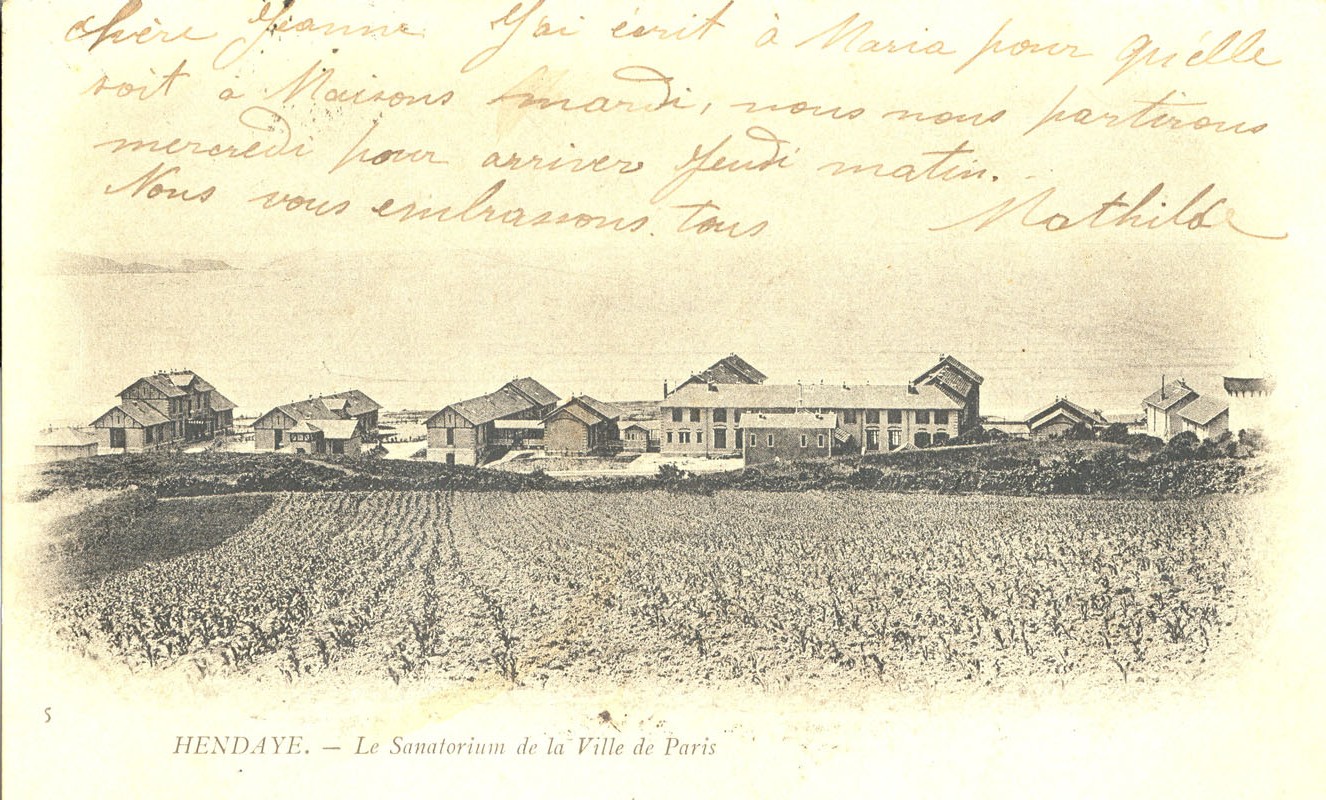 chère Jeanne J'ai écrit à Maria pour qu'elle
soit à Maisons mardi, nous nous partirons
mercredi pour arriver Jeudi matin.
Nous vous embrassons tous Mathilde
5
HENDAYE. — Le Sanatorium de la Ville de Paris